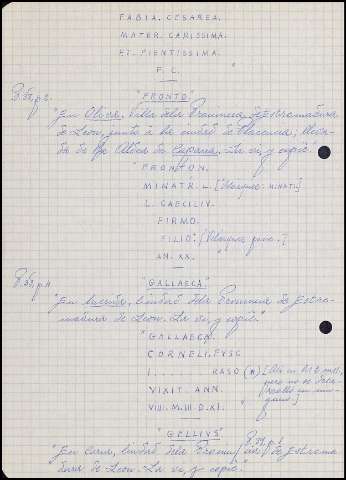 FABIA. CESAREA.
MATER. CARISSIMA.
ET. PIENTISSIMA.
F. C. "
"FRONTO"
"En Oliva, villa dela Provincia de Estremadura
de León, junto a la ciudad de Plasencia,
de Caparra. La vi, y copié."
"FRONTON.
MINATR. L. [Velazquez: MINATI.]
L. CAECILIV.
FIRMO.
FILIO. [Velazquez pone.]
AN. XX. "
"GALLAECA"
"En ciudad dela Provincia de Estre-
madura de León. La vi, y copié."
"GALLAECA.
CORNELI. FVSC
I . . . . . RASO (*)
VIXIT. ANN.
VIII. M. III. D. XI.
"GELLIVS"
"En Coria, ciudad dela Provincia de Estrema
dura de León. La vi, y copié."